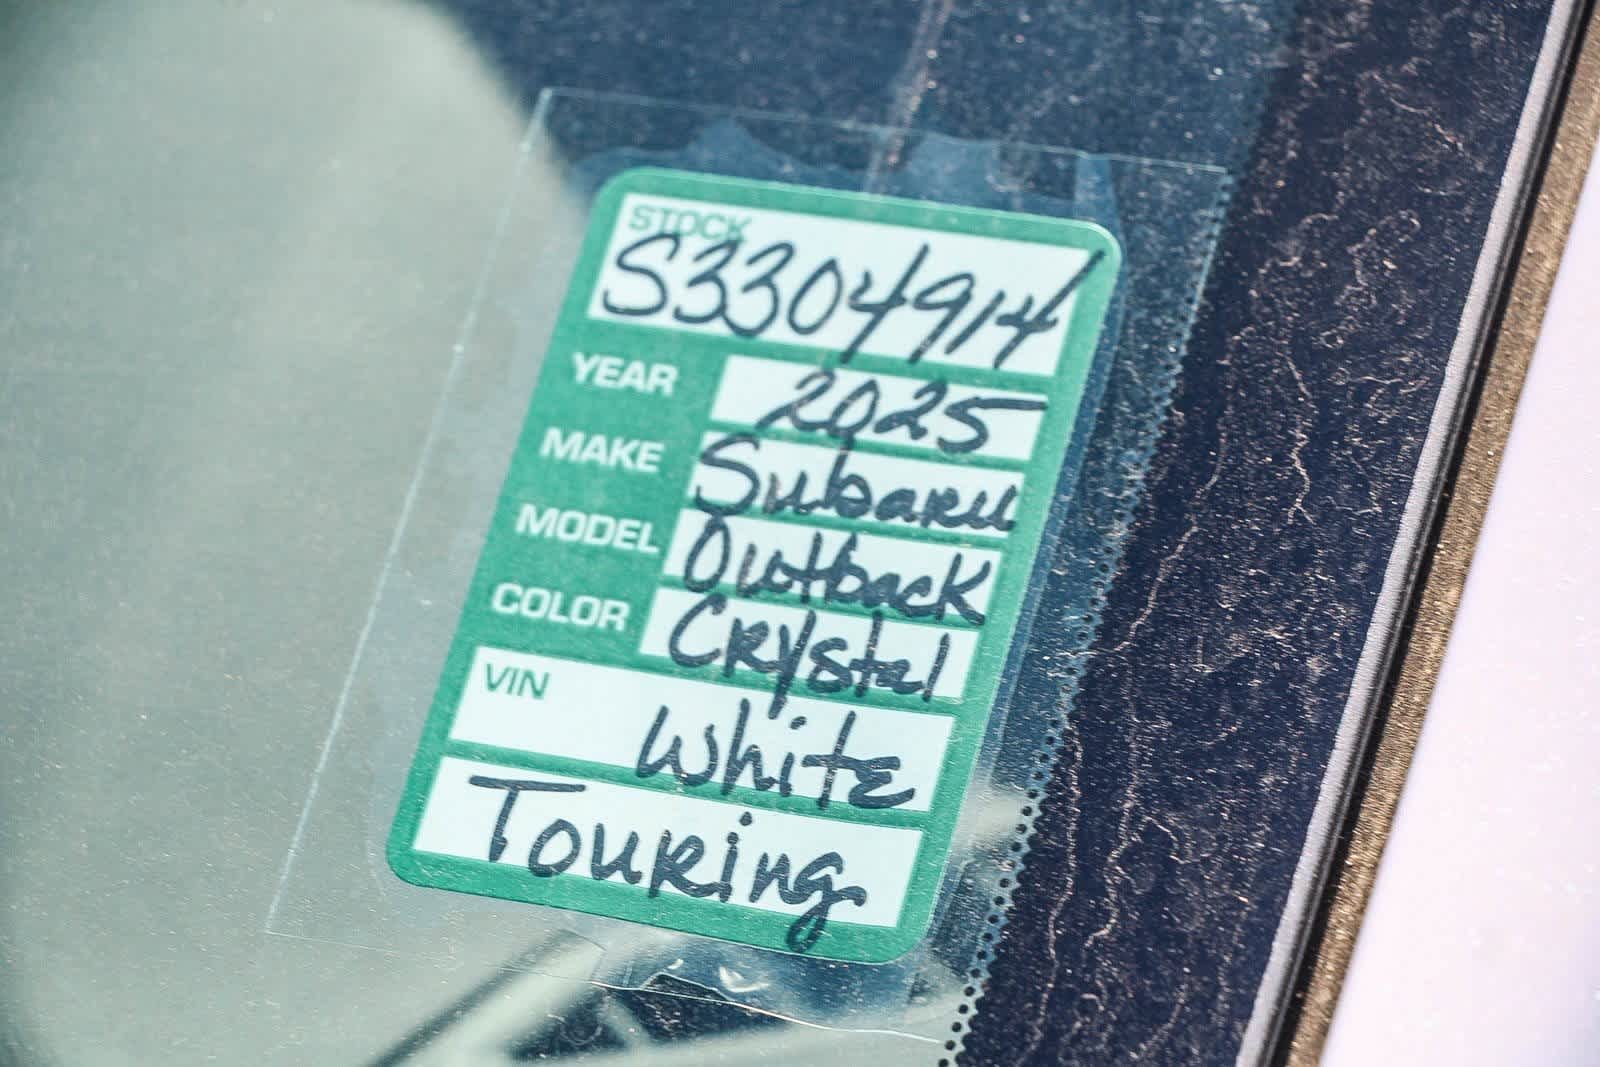 STOCK
S3304914
YEAR 2025
MAKE Subaru
MODEL Outback
COLOR Crystal
VIN White
Touring